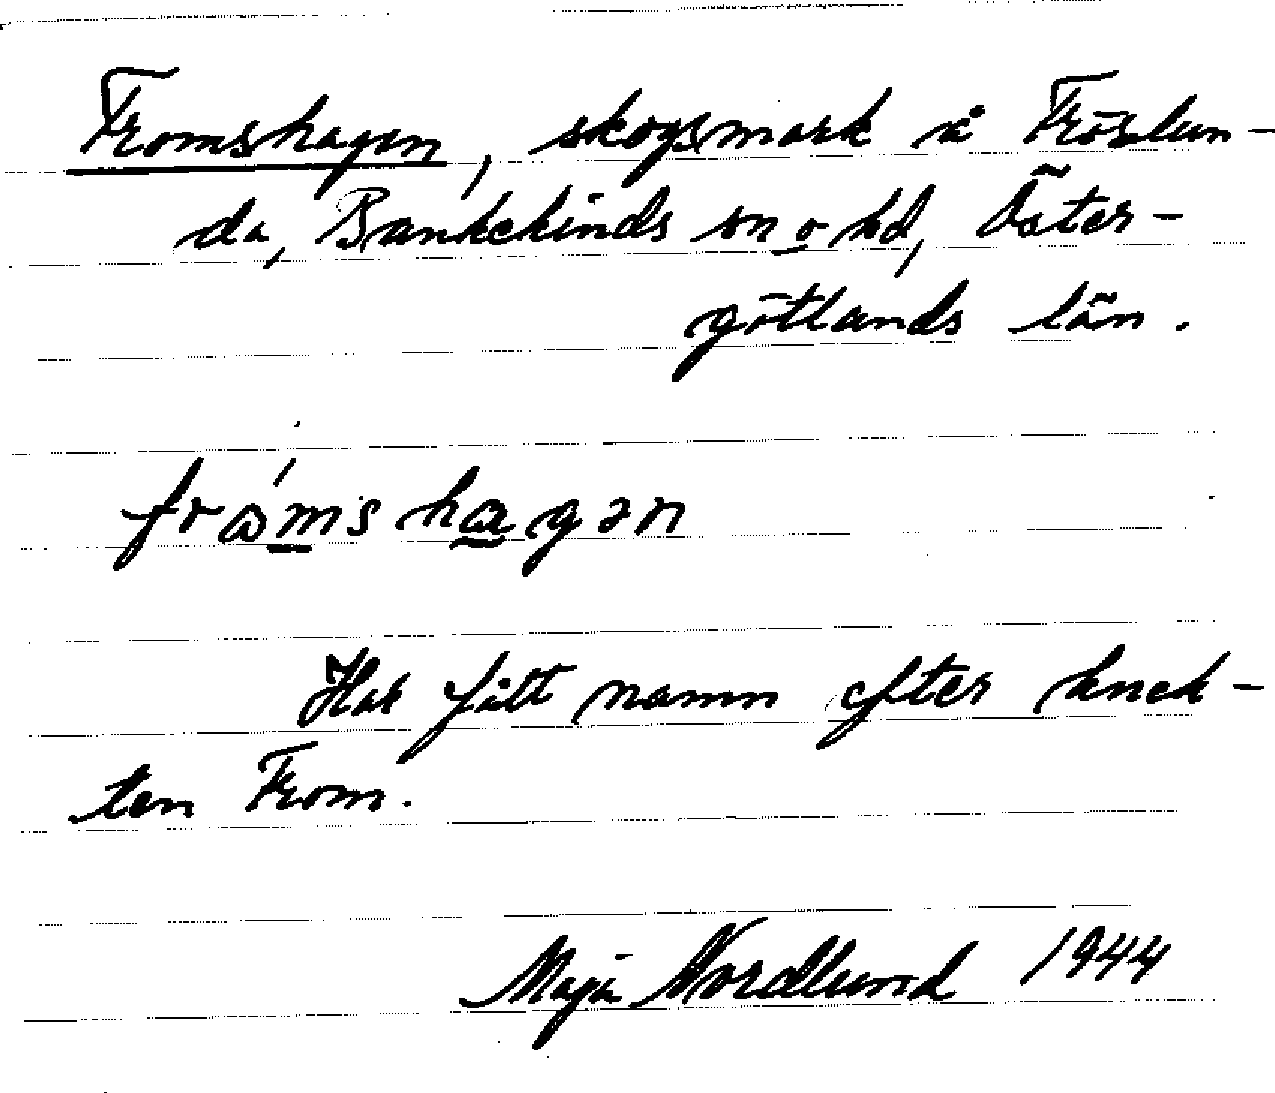 Fromshagen, skogsmark i Fröslun-
da, Bankekinds sn o hd, Öster-
götlands län.
frωmshagən
Har fått namn efter knek-
ten From.
Maja Nordlund 1944